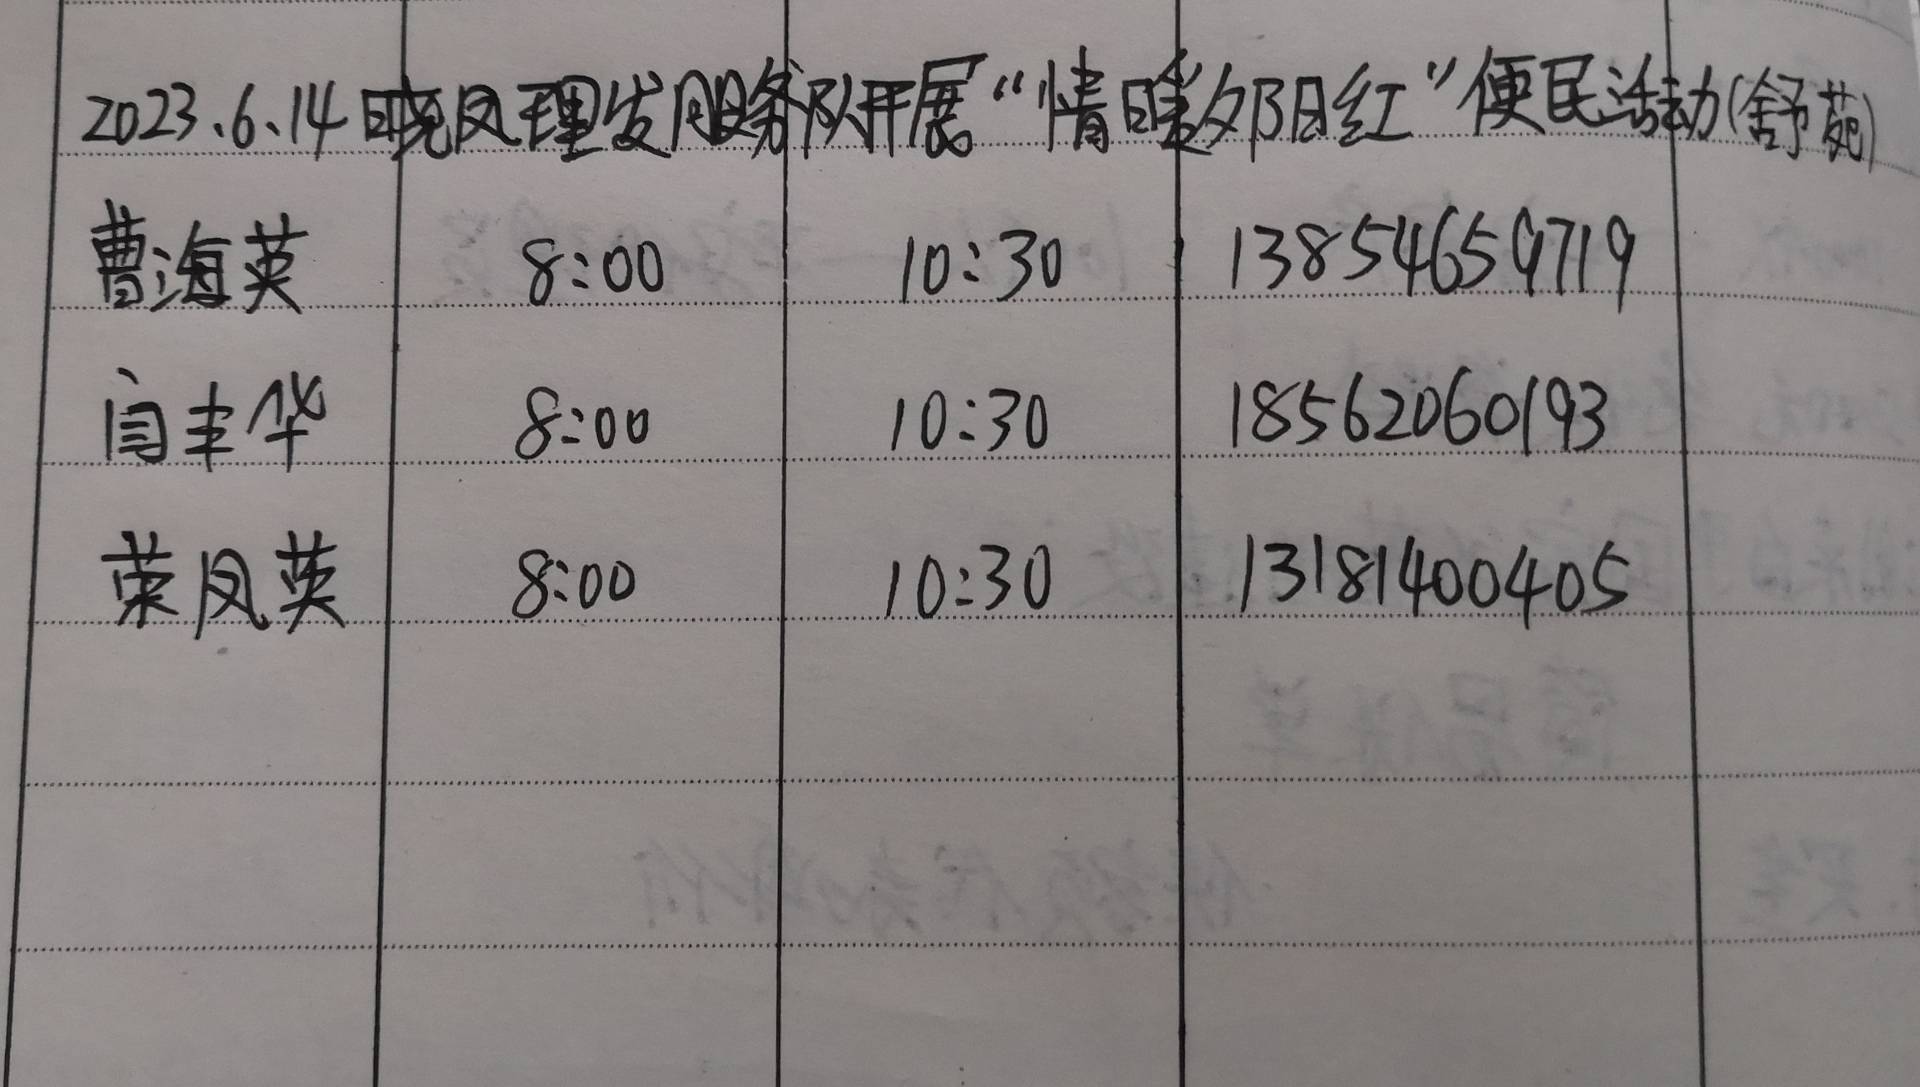 2023.6.14晓凤理发服务队开展“情暖夕阳红”便民活动(舒苑)
曹海英 8:00 10:30 13854659719
闫丰华 8:00 10:30 18562060193
荣凤英 8:00 10:30 13181400405